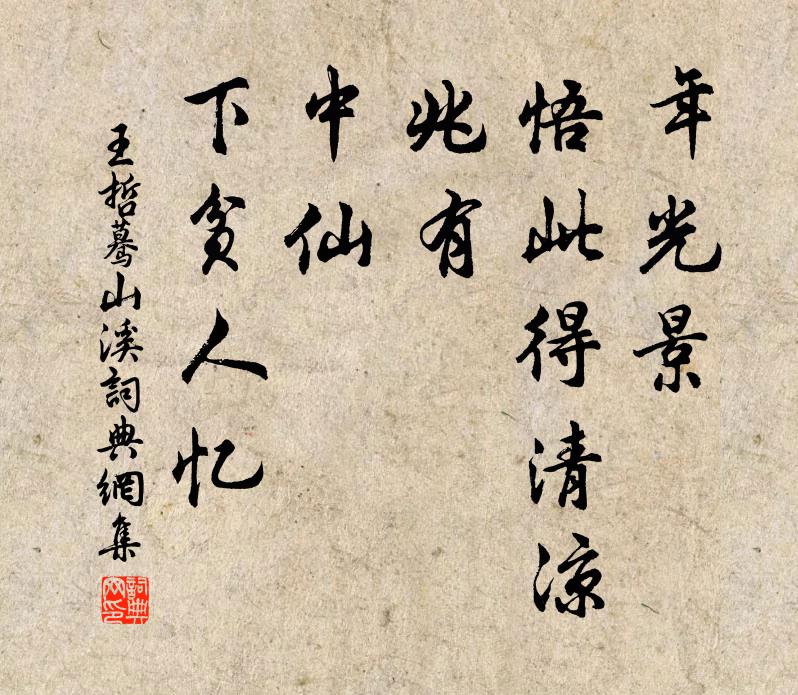 年光景
悟此得清凉
兆有
中仙
下贫人忆
王哲蓦山溪詞典網集
詞典
网印